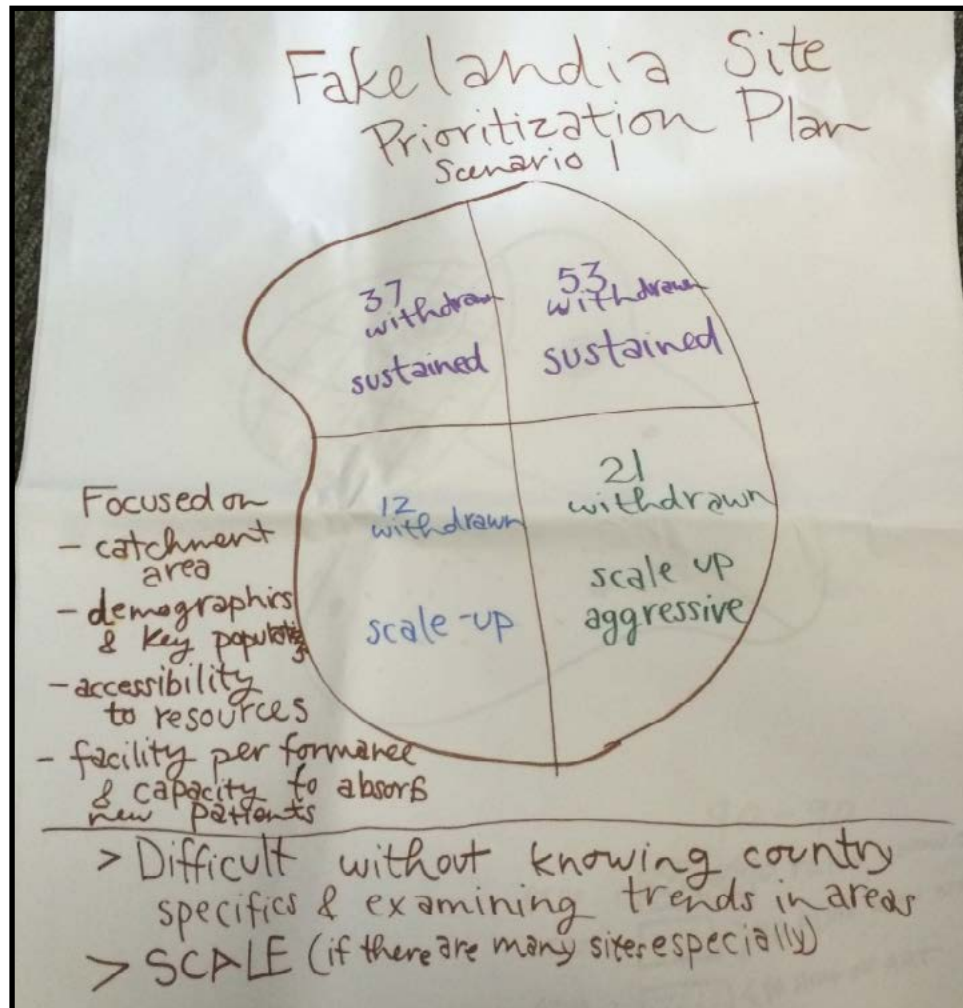 Fakelandia Site
Prioritization Plan
Scenario 1
37
withdrawn
sustained
53
withdrawn
sustained
12
withdrawn
scale-up
21
withdrawn
scale up
aggressive
Focused on
- catchment
area
- demographics
& key populations
- accessibility
to resources
- facility performance
& capacity to absorb
new patients
> Difficult without knowing country
specifics & examining trends in areas
> SCALE (if there are many sites especially)